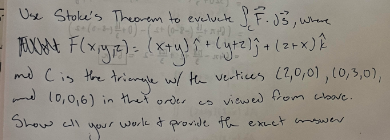 Use Stoke's Theorem to evaluate ∫_C F⃗ · dS⃗, where
F(x,y,z) = (x+y) î + (y+z) ĵ + (z+x) k̂
and C is the triangle w/ the vertices (2,0,0), (0,3,0),
and (0,0,6) in that order as viewed from above.
Show all your work & provide the exact answer